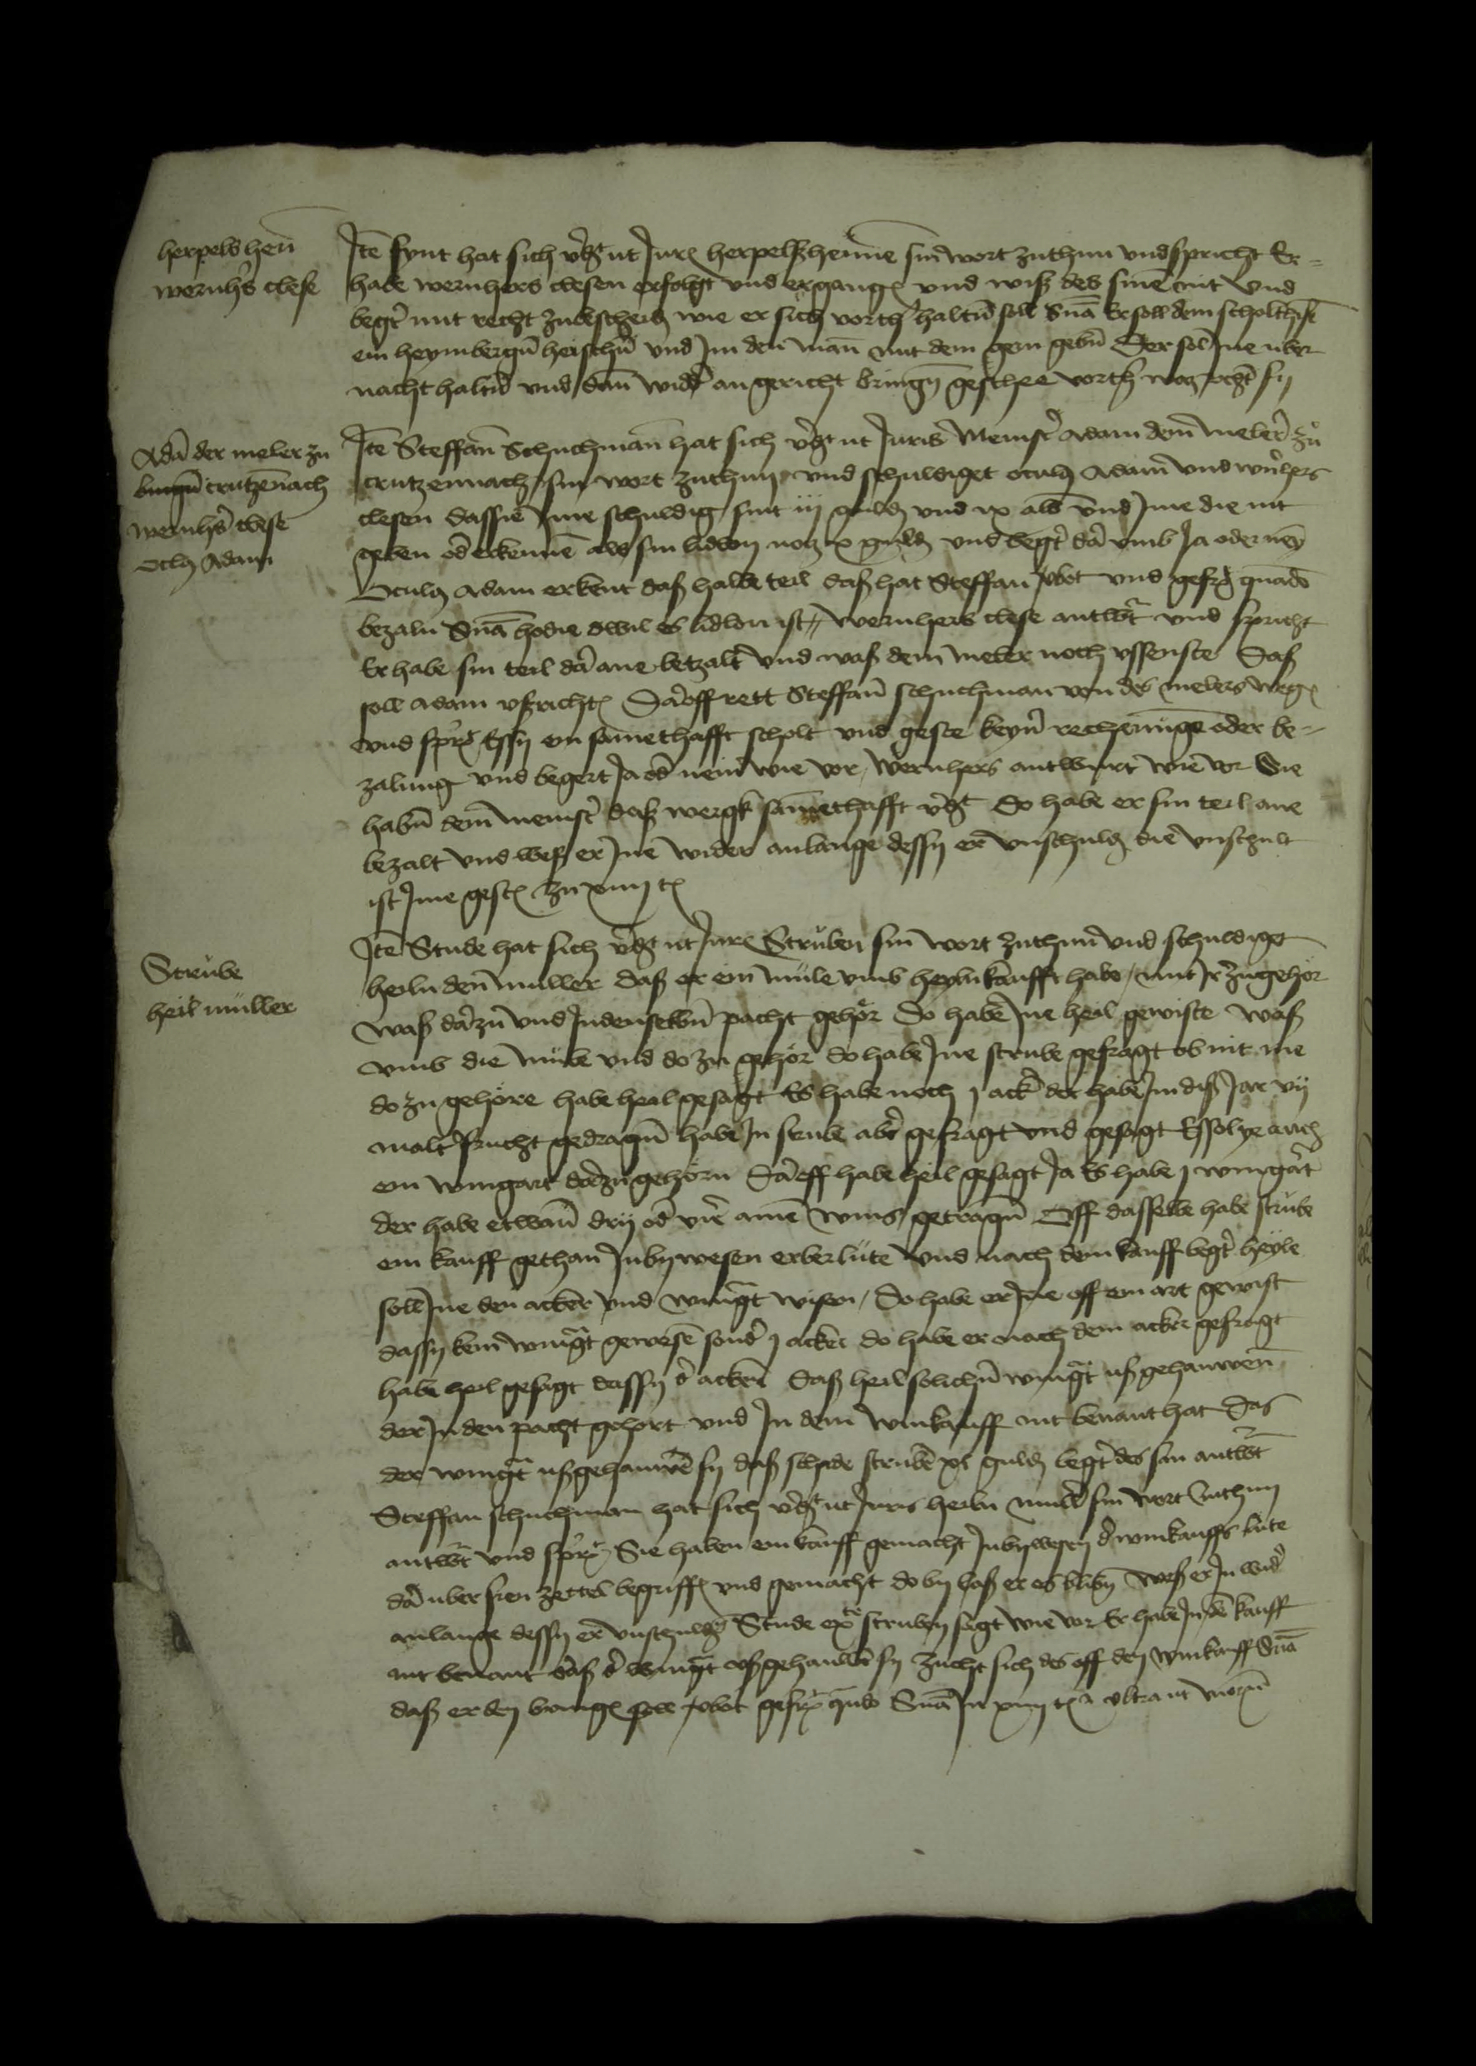 herpels hen̄
wernh's clese
Itē Fynt hat sich v'dgt ut Jur(is) herpelßhenne sin wort zuthun und spricht Er
habe wernhers clesen erfolgt und ergangē und wiß des sinē nit Und
begr't mit recht zubescheid(en) wie er sich vorth' haltū soll Snā Er soll dem scholth(eis)
ein heymberḡn heischn̄ und Im den man mit dem gern gebn̄ Der sol Ine uber
nacht haltn̄ und dan widd' an gericht bringn̄ geschee vorth' waz recht sy
Adā der meler zu
bingn̄ crutzēnach
wernh's clese
Ocul(y) Adam
Itē Steffan Schuchman hat sich v'dgt ut Juris Meinst' Adam dem meler' zů
Crutzennach sin wort zuthun und schuldiget oculy Adam und wn'hers
clesen daß sie Ime schuldig sint iij guld(en) und ix alb und Ime die nit
geben od' erkennē als sin lidlon noch x guld(en) und begr't dā umb Ja oder neyn
Oculy Adam erkent daß halbe teil daß hat Steffan v'bot und gefr(agt) quādo
bezaln Snā hodie dwil es lidlon ist // Wernhers clese antw't und spricht
Er habe sin teil dā ane betzalt und waß dem meler noch ussenste Daß
soll Adam ußrichtē Dā off rett Steffan schuchman von des melers wegē
und spr(icht) Eß sy ein samethafft scholt und geste keyn' rechenunge oder be-
zalung und begert Ja od' nein wie vor, Wernhers antwurt wie vor Sie
habn̄ dem meinst' daß wergk samethafft v'dgt do habe er sin teil ane
bezalt und weß er Ine wider anlange deß sy er unschuld(ig) die unschult
ist Ime gest(alt) zu xiiij t(agen)
Strůbe
heil műller
Itē Stude hat sich v'dgt ut Jur(is) Strůben sin wort zuthun und schuldiget
heiln den műller daß er ein műle umb heyln kaufft habe, mit Ir' zugehőr
waß dā zu und In denselbn̄ pacht gehőr Do habe Ine heil gewiste waß
umb die műle und do zu gehőr do habe Ine strube gefragt ob nit me
do zu gehőre habe heil gesagt Es habe noch j ack' der habe In diß Jar vij
malt' frucht gedragn̄ habe In strube ab' gefragt und gesagt Eß sol ye auch
ein wingart dā zu gehőrn Dā off habe heil gesagt Ja Es habe j wingart
der habe etwan drij od' vir' amē wins getragn̄ Off dasselbe habe strůbe
ein kauff gethan In bywesen erber lűte und nach dem kauff begr't heyle
soll Ine den acker und wing't wisen, Do habe er Ine off ein art gewist
daß sy kein wing't gewesē sond' j acker do habe er nach dem acker gefragt
habe heil gesagt daß sy d' acker Daß heil solichn̄ wing't ußgehauwen
der In den pacht gehort und In dem winkauff nit benant hat Das
der wing't ußgehauwē sy daß schade strubē xl guld(en) begr't des sin antw't
Steffan schuchman hat sich v'dgt ut Juris heiln műller sin wort zuthun
antw't und spr(icht) Sie haben ein kauff gemacht In bywesen d' winkauffs lute
dā uber sien zettel begriffē und gemacht do by laß er es blibn̄ weß er In wid'
anlange deß sy er unschuld(ig) Stude ex p(ar)te struben sagt wie vor Er habe In dē kauff
nit benant daß d' wing't ußgehauwē sy zucht sich des off den winkauff Snā
daß er den bringē soll v'bot gefr(agt) q̄ndo Snā In xiiij t(agen) ultra ut mor(is)